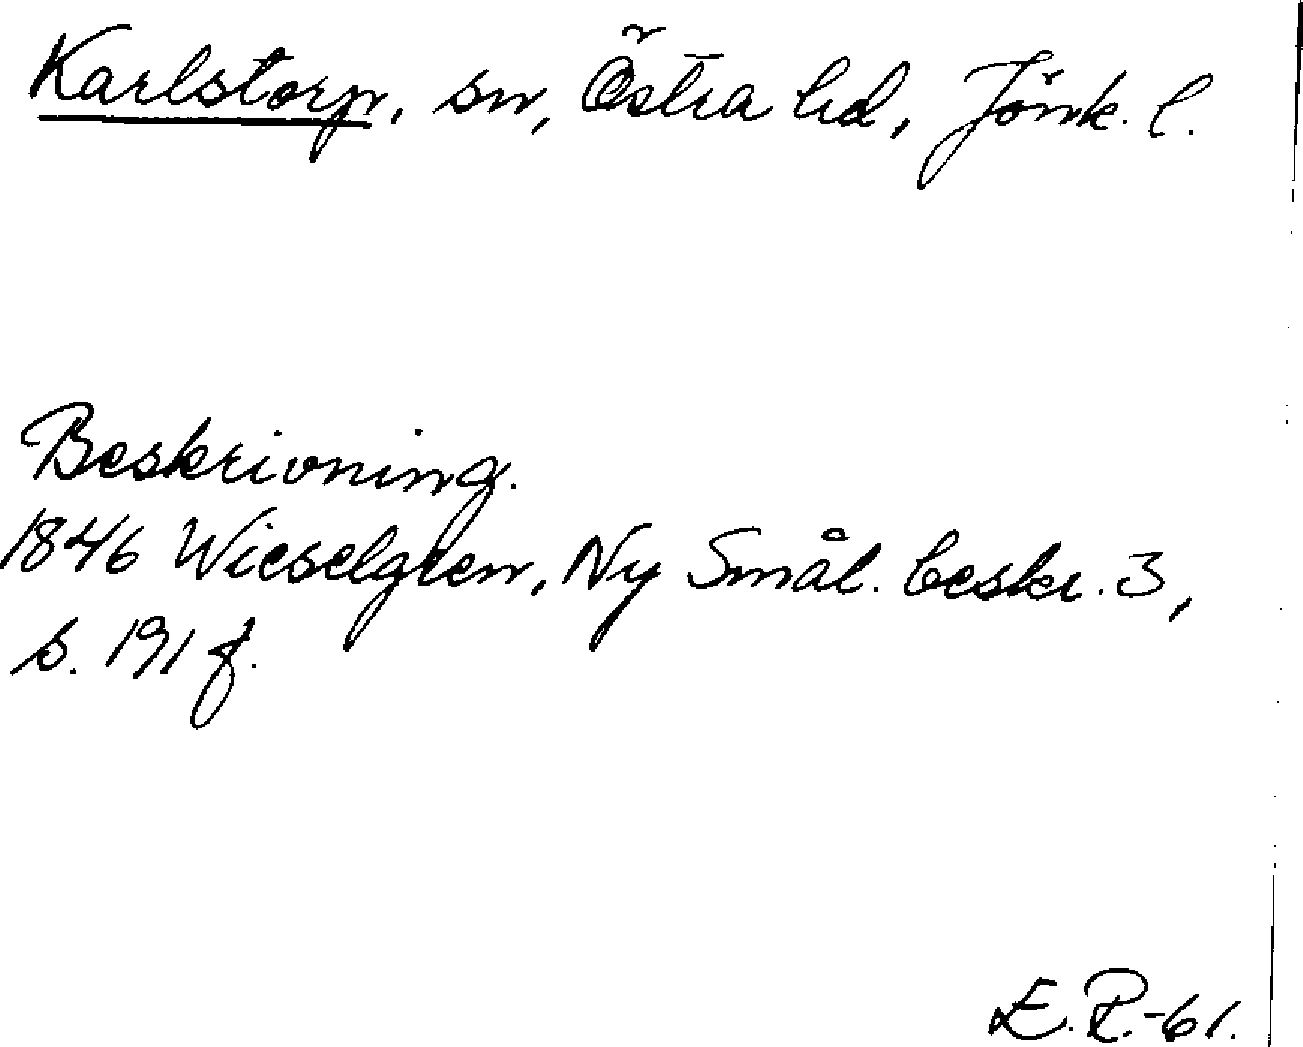 Karlstorp, sn, Östra hd, Jönk. l.
Beskrivning.
1846 Wieselgren, Ny Smål. beskr. 3,
s. 191 f.
E. P.-61.